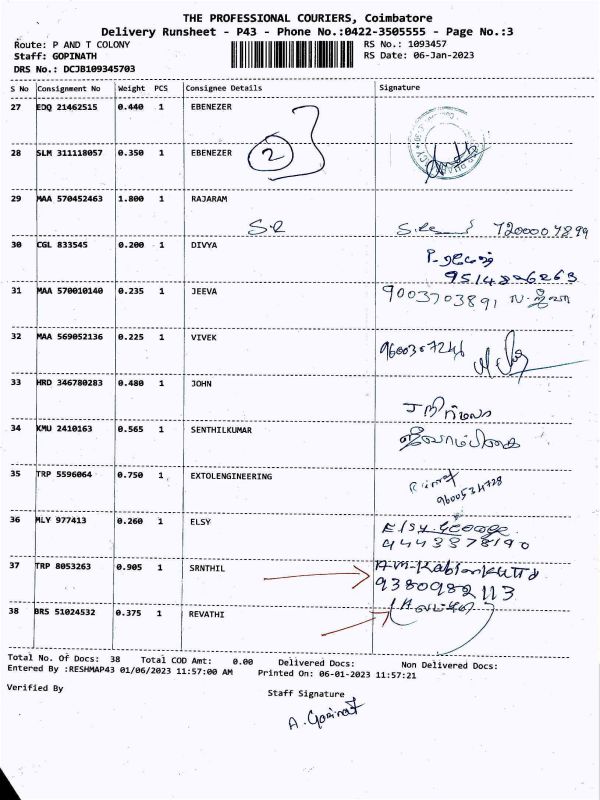 THE PROFESSIONAL COURIERS, Coimbatore
Delivery Runsheet - P43 - Phone No.:0422-3505555 - Page No.:3
Route: P AND T COLONY
Staff: GOPINATH
DRS No.: DCJB109345703
RS No.: 1093457
RS Date: 06-Jan-2023
S No Consignment No Weight PCS Consignee Details Signature
27 EDQ 21462515 0.440 1 EBENEZER
28 SLM 311118057 0.350 1 EBENEZER 2
29 MAA 570452463 1.800 1 RAJARAM
S.R 7200007899
30 CGL 833545 0.200 1 DIVYA
9514826263
31 MAA 570010140 0.235 1 JEEVA 9003703891
32 MAA 569052136 0.225 1 VIVEK
33 HRD 346780283 0.480 1 JOHN
J நிர்மலா
34 KMU 2410163 0.565 1 SENTHILKUMAR ஜீவாம்பிகை
35 TRP 5596064 0.750 1 EXTOLENGINEERING
9600534728
36 MLY 977413 0.260 1 ELSY Elsy George
9443378190
37 TRP 8053263 0.905 1 SRNTHIL
9380982113
38 BRS 51024532 0.375 1 REVATHI
Total No. Of Docs: 38 Total COD Amt: 0.00 Delivered Docs: Non Delivered Docs:
Entered By :RESHMAP43 01/06/2023 11:57:00 AM Printed On: 06-01-2023 11:57:21
Verified By
Staff Signature
A. Gopinat